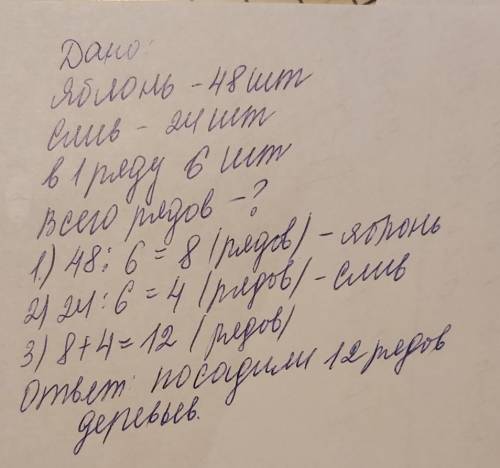 Дано:
Яблонь - 48 шт
Слив - 24 шт
в 1 ряду 6 шт
Всего рядов - ?
1) 48 : 6 = 8 (рядов) - яблонь
2) 24 : 6 = 4 (рядов) - слив
3) 8 + 4 = 12 (рядов)
Ответ: посадили 12 рядов
деревьев.